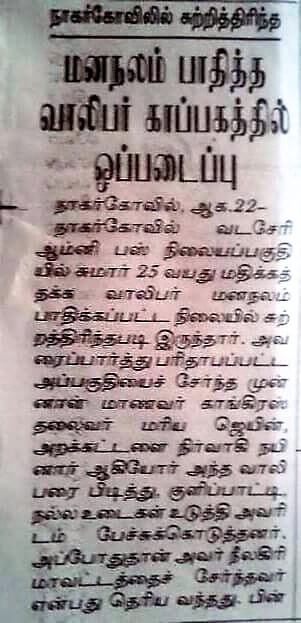 நாகர்கோவிலில் சுற்றித்திரிந்த
மனநலம் பாதித்த
வாலிபர் காப்பகத்தில்
ஒப்படைப்பு
நாகர்கோவில், ஆக.22-
நாகர்கோவில் வடசேரி
ஆம்னி பஸ் நிலையப்பகுதி
யில் சுமார் 25 வயது மதிக்கத்
தக்க வாலிபர் மனநலம்
பாதிக்கப்பட்ட நிலையில் சுற்
றத்திரிந்தபடி இருந்தார். அவ
ரைப்பார்த்து பரிதாபப்பட்ட
அப்பகுதியைச் சேர்ந்த முன்
னாள் மாணவர் காங்கிரஸ்
தலைவர் மரிய ஜெயின்,
அறக்கட்டளை நிர்வாகி நயி
னார் ஆகியோர் அந்த வாலி
பரை பிடித்து, குளிப்பாட்டி,
நல்ல உடைகள் உடுத்தி அவரி
டம் பேச்சுக்கொடுத்தனர்.
அப்போதுதான் அவர் நீலகிரி
மாவட்டத்தைச் சேர்ந்தவர்
என்பது தெரிய வந்தது. பின்